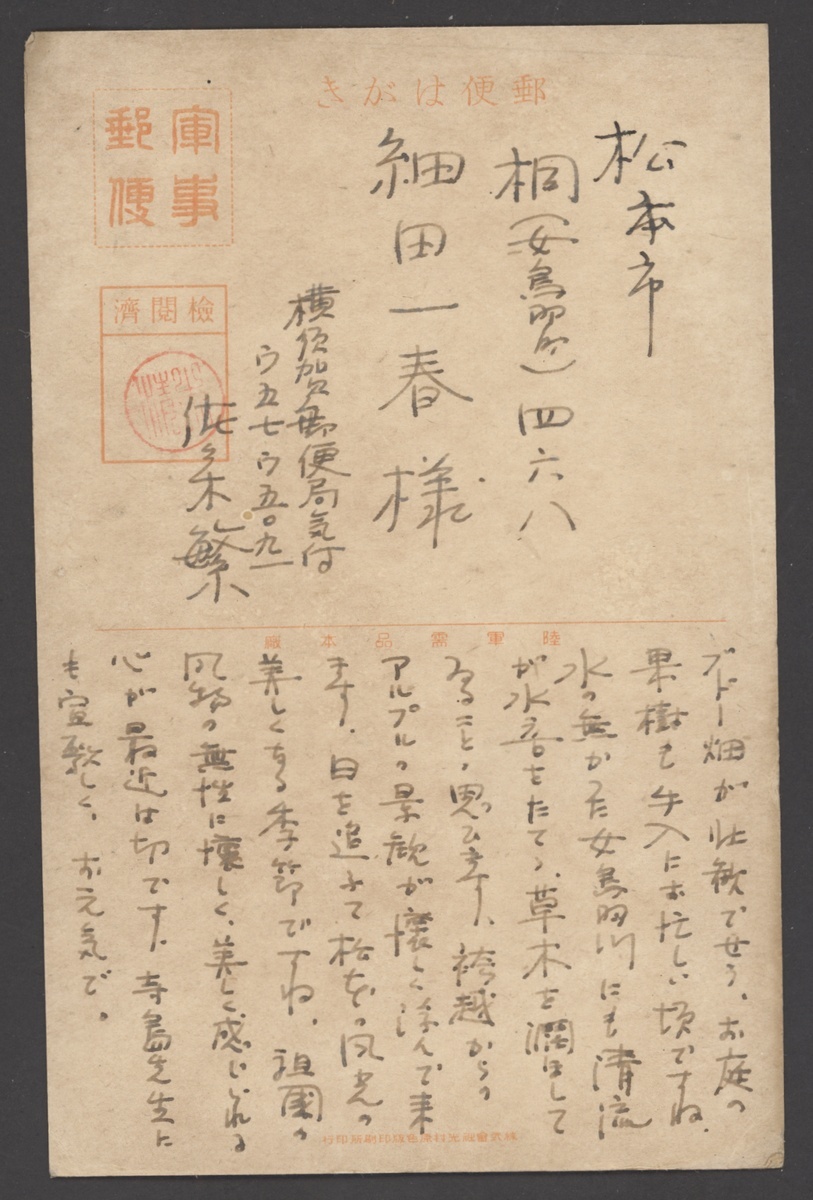 郵便はがき
軍事
郵便
検閲済
松本市
桐(女鳥羽町)四六八
細田一春様
横須賀郵便局気付
ウ五七ウ五〇九一
佐条繁
陸軍需品本廠
ブドー畑が壮観でせう、お庭の
果樹も手入にお忙しい頃ですね、
水の無かつた女鳥羽川にも清流
が水音をたてゝ、草木を潤ほして
ゐること、思ひます、袴越からの
アルプルの景観が懐しく浮んで来
ます、日を追ふて松本の風光の
美しくなる季節ですね、祖國の
風物の無性に懐しく、美しく感じられる
心が最近は切です、寺島先生に
も宜敷しく、お元気で。